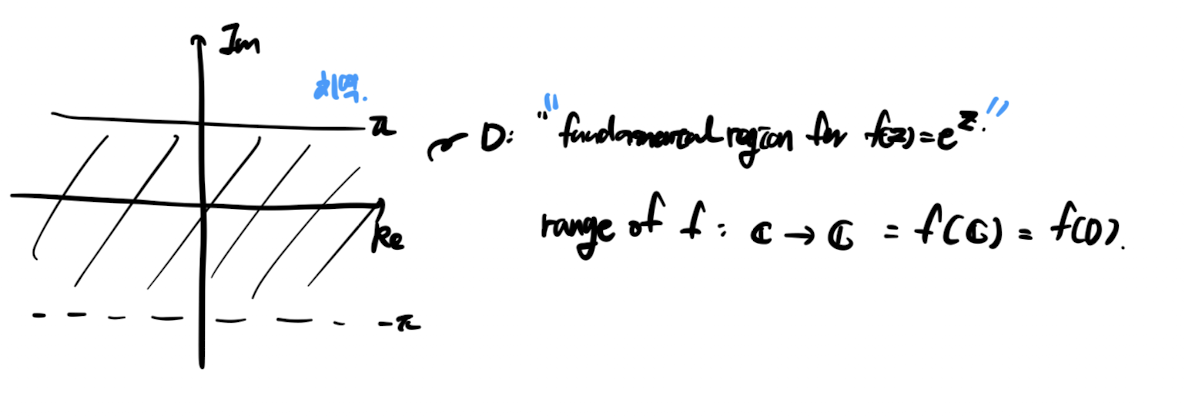 Im
치역.
π
D: "fundamental region for f(z)=e^z."
Re
range of f: ℂ → ℂ = f(ℂ) = f(D).
-π